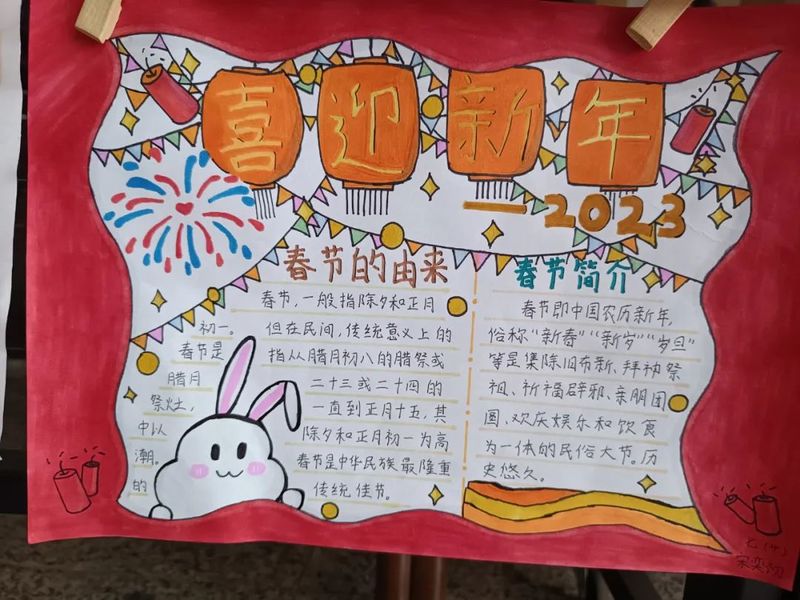 喜迎新年
—2023
春节的由来
春节，一般指除夕和正月
初一。但在民间，传统意义上的
春节是指从腊月初八的腊祭或
腊月二十三或二十四的
祭灶，一直到正月十五，其
中以除夕和正月初一为高
潮。春节是中华民族最隆重
的传统佳节。
春节简介
春节即中国农历新年，
俗称“新春”“新岁”“岁旦”
等是集除旧布新、拜神祭
祖、祈福辟邪、亲朋团
圆、欢庆娱乐和饮食
为一体的民俗大节。历
史悠久。